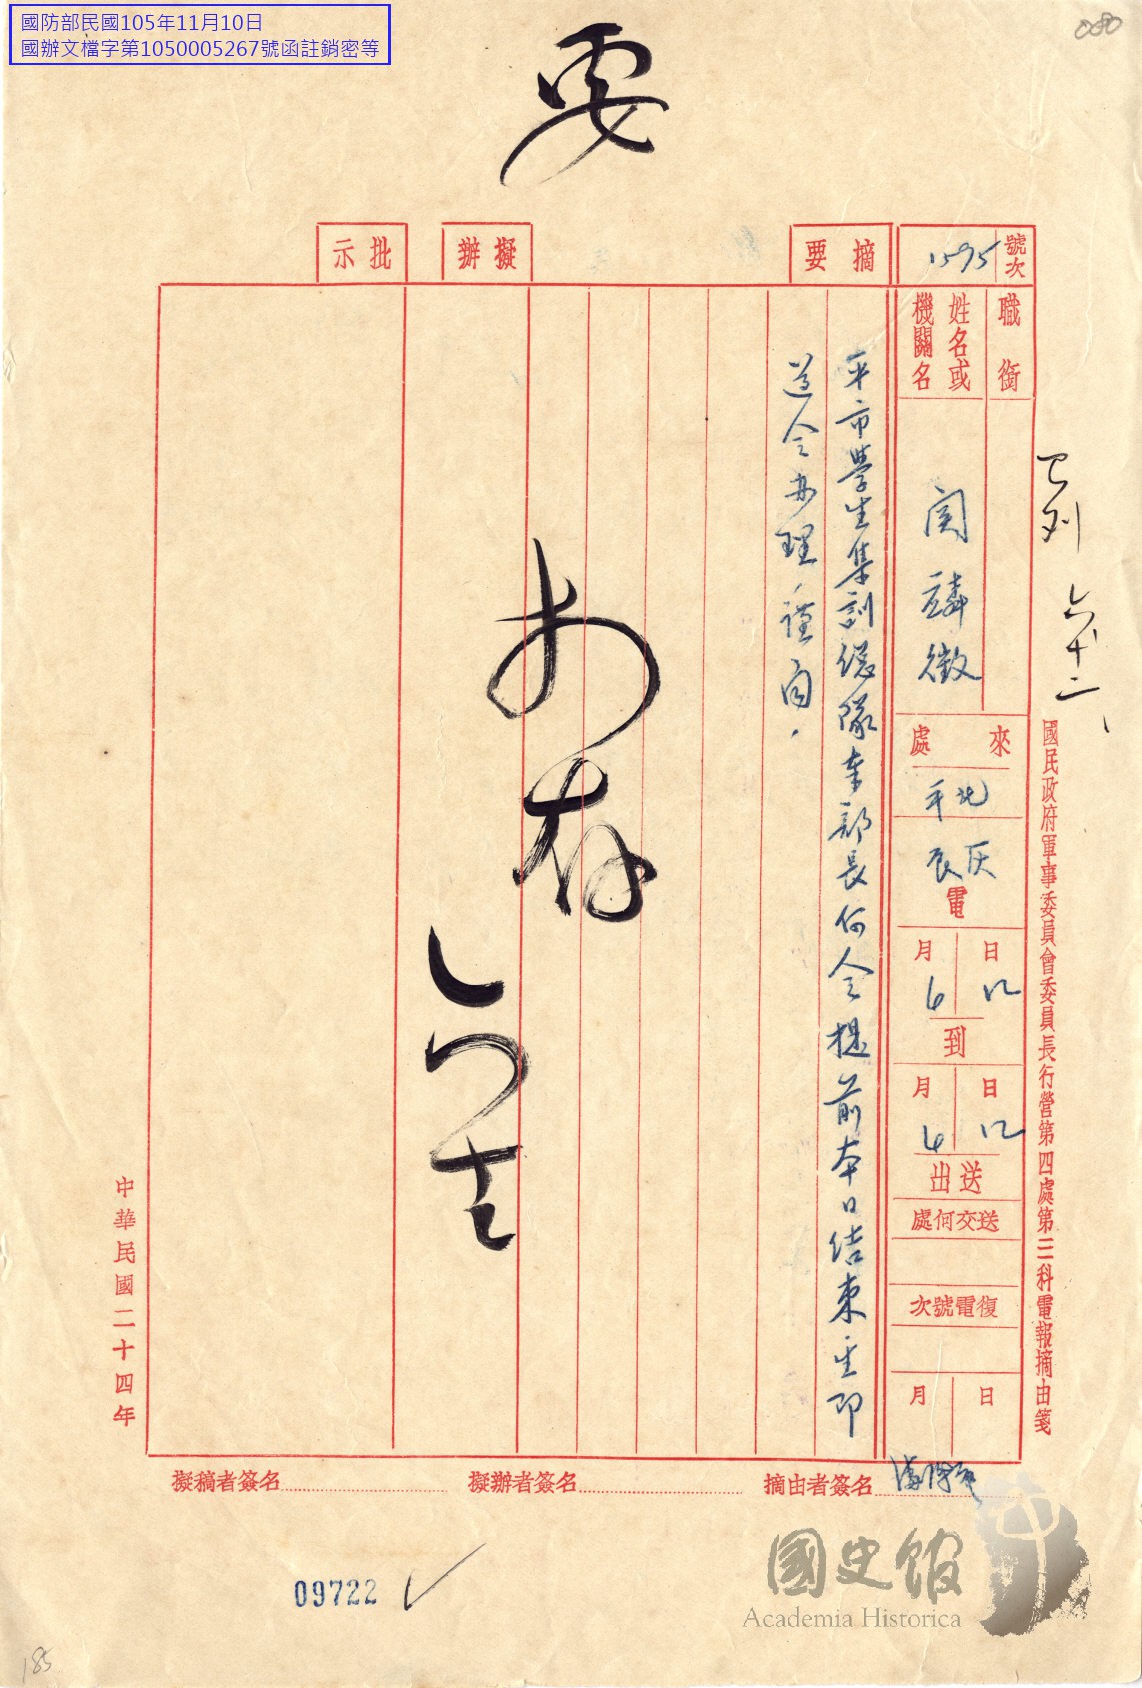 國防部民國105年11月10日
國辦文檔字第1050005267號函註銷密等
080
要
號次
1595
摘要
擬辦
批示
職銜
姓名或
機關名
關麟徵
來處
北平
灰辰
電
12日
6月
到
12日
6月
送出
送交何處
復電號次
日
月
平市學生集訓總隊奉部長何令提前本日結束並即
遵令辦理謹聞
如存
六十二
國民政府軍事委員會委員長行營第四處第三科電報摘由箋
中華民國二十四年
摘由者簽名
擬辦者簽名
擬稿者簽名
09722
國史館
Academia Historica
185